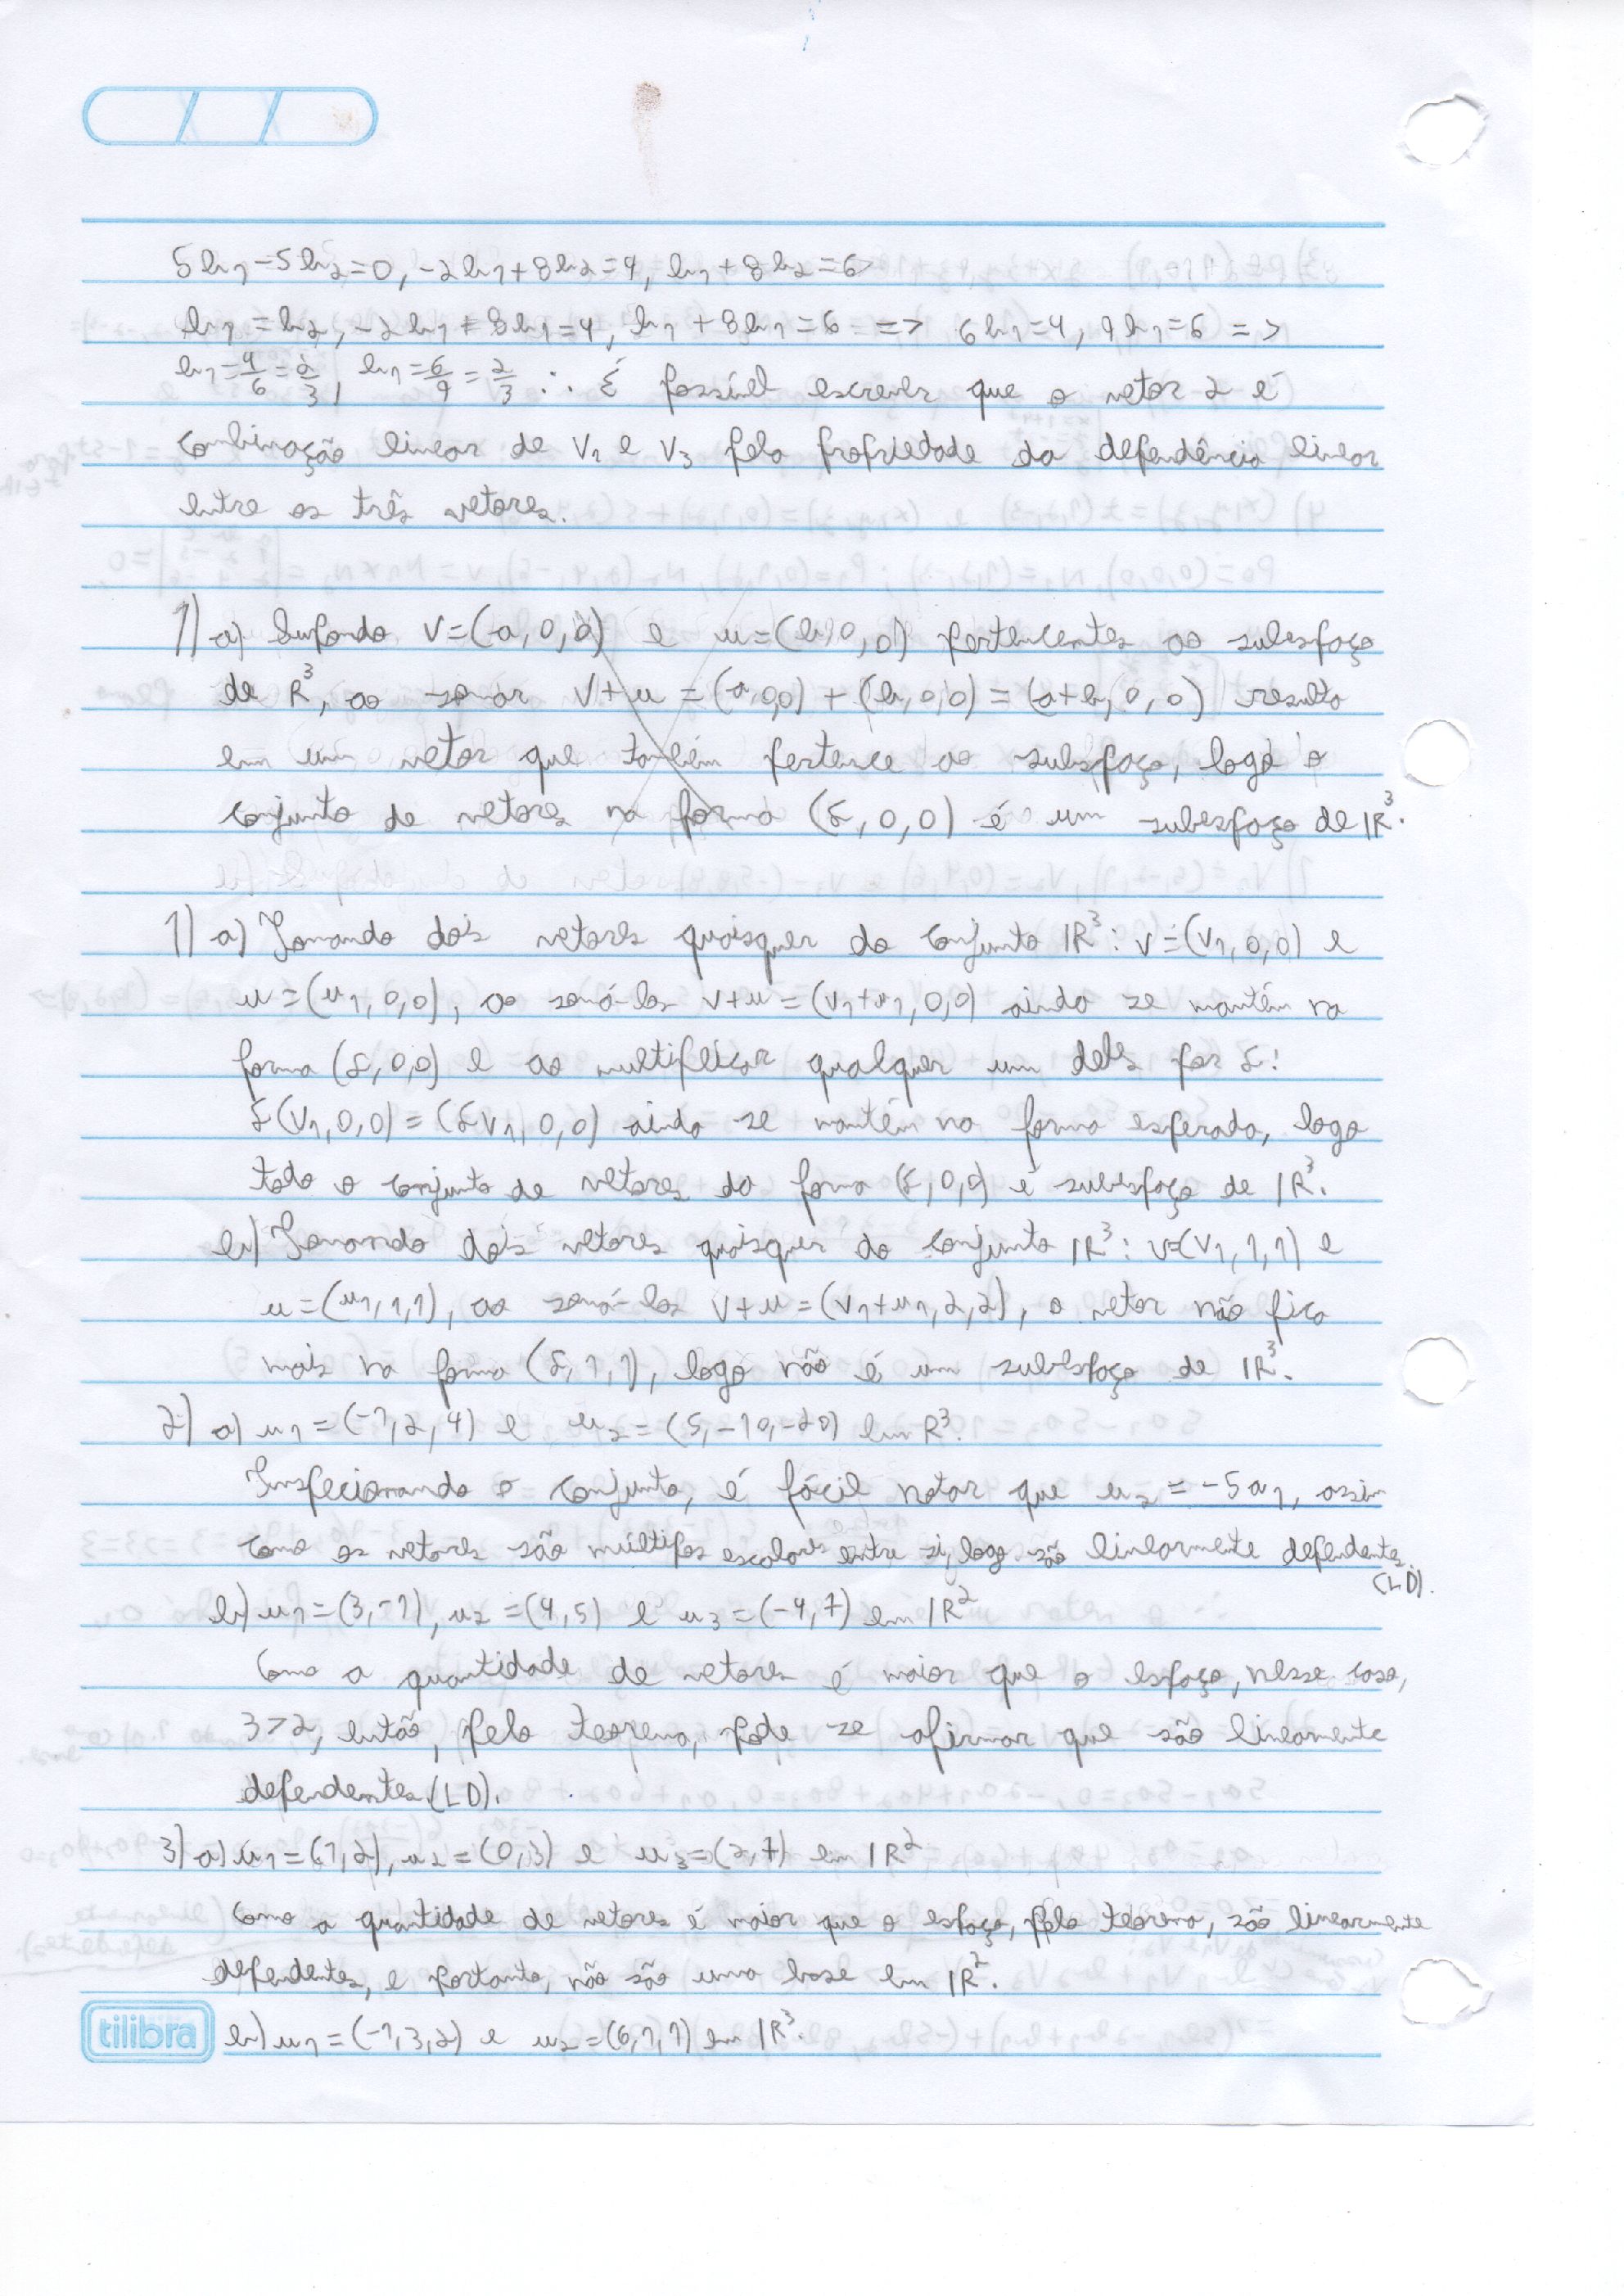 5b₁-5b₂=0, -2b₁+8b₂=4, b₁+8b₂=6
b₁=b₂, -2b₁+8b₁=4, b₁+8b₁=6 => 6b₁=4, 9b₁=6 =>
b₁=4/6=2/3, b₁=6/9=2/3 ∴ É possível escrever que o vetor 2 é
combinação linear de V₁ e V₃ pela propriedade da dependência linear
entre os três vetores.
1) a) Supondo V=(a,0,0) e u=(b,0,0) pertencentes ao subespaço
de R³, ao somar V+u=(a,0,0)+(b,0,0)=(a+b,0,0) resulta
em um vetor que também pertence ao subespaço, logo o
conjunto de vetores na forma (ξ,0,0) é um subespaço de IR³.
1) a) Tomando dois vetores quaisquer do conjunto IR³: v=(v₁,0,0) e
u=(u₁,0,0), ao somá-los v+u=(v₁+u₁,0,0) ainda se mantém na
forma (ξ,0,0) e ao multiplicar qualquer um deles por ξ:
ξ(v₁,0,0)=(ξv₁,0,0) ainda se mantém na forma esperada, logo
todo o conjunto de vetores da forma (ξ,0,0) é subespaço de IR³.
b) Tomando dois vetores quaisquer do conjunto IR³: v=(v₁,1,1) e
u=(u₁,1,1), ao somá-los v+u=(v₁+u₁,2,2), o vetor não fica
mais na forma (ξ,1,1), logo não é um subespaço de IR³.
2) a) u₁=(-1,2,4) e u₂=(5,-10,-20) em R³.
Inspecionando o conjunto, é fácil notar que u₂=-5u₁, assim
como os vetores são múltiplos escalares entre si, logo são linearmente dependentes.
(LD).
b) u₁=(3,-1), u₂=(4,5) e u₃=(-4,7) em IR²
Como a quantidade de vetores é maior que o espaço, nesse caso,
3>2, então, pelo teorema, pode se afirmar que são linearmente
dependentes (LD).
3) a) u₁=(1,2), u₂=(0,3) e u₃=(2,7) em IR²
Como a quantidade de vetores é maior que o espaço, pelo teorema, são linearmente
dependentes, e portanto, não são uma base em IR².
tilibra b) u₁=(-1,3,2) e u₂=(6,1,1) em IR³.